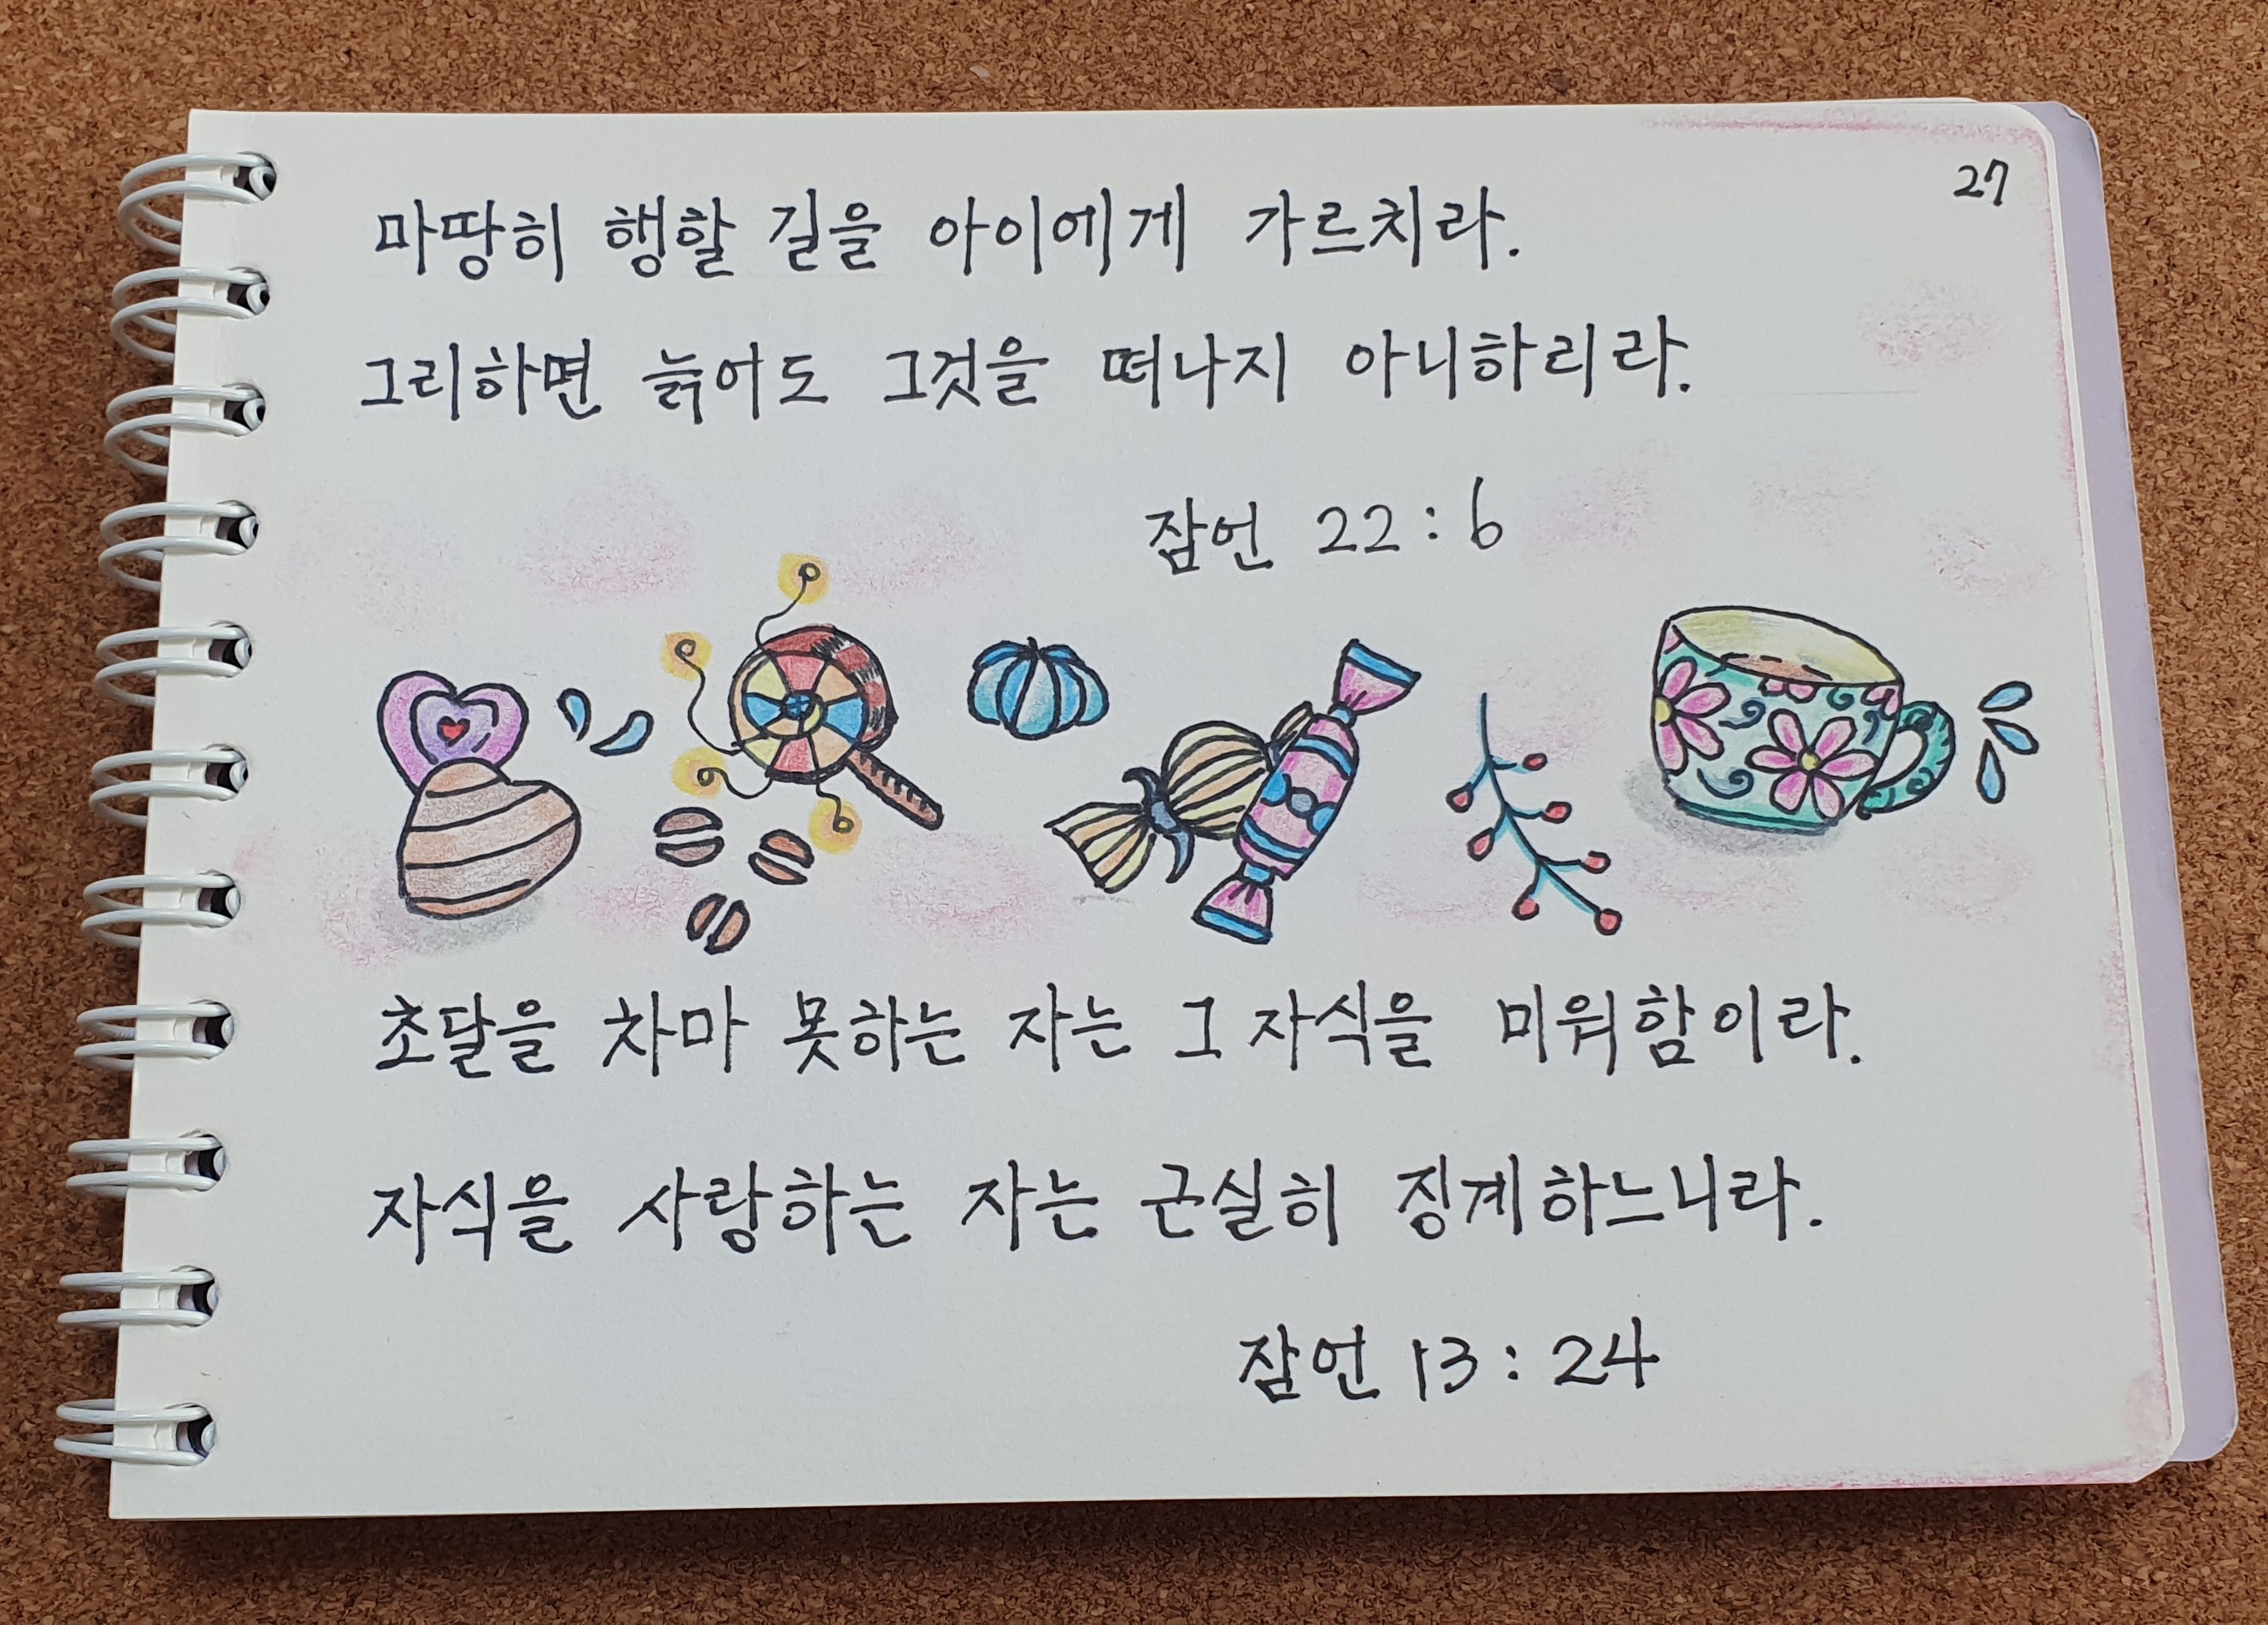 27
마땅히 행할 길을 아이에게 가르치라.
그리하면 늙어도 그것을 떠나지 아니하리라.
잠언 22:6
초달을 차마 못하는 자는 그 자식을 미워함이라.
자식을 사랑하는 자는 근실히 징계하느니라.
잠언 13:24